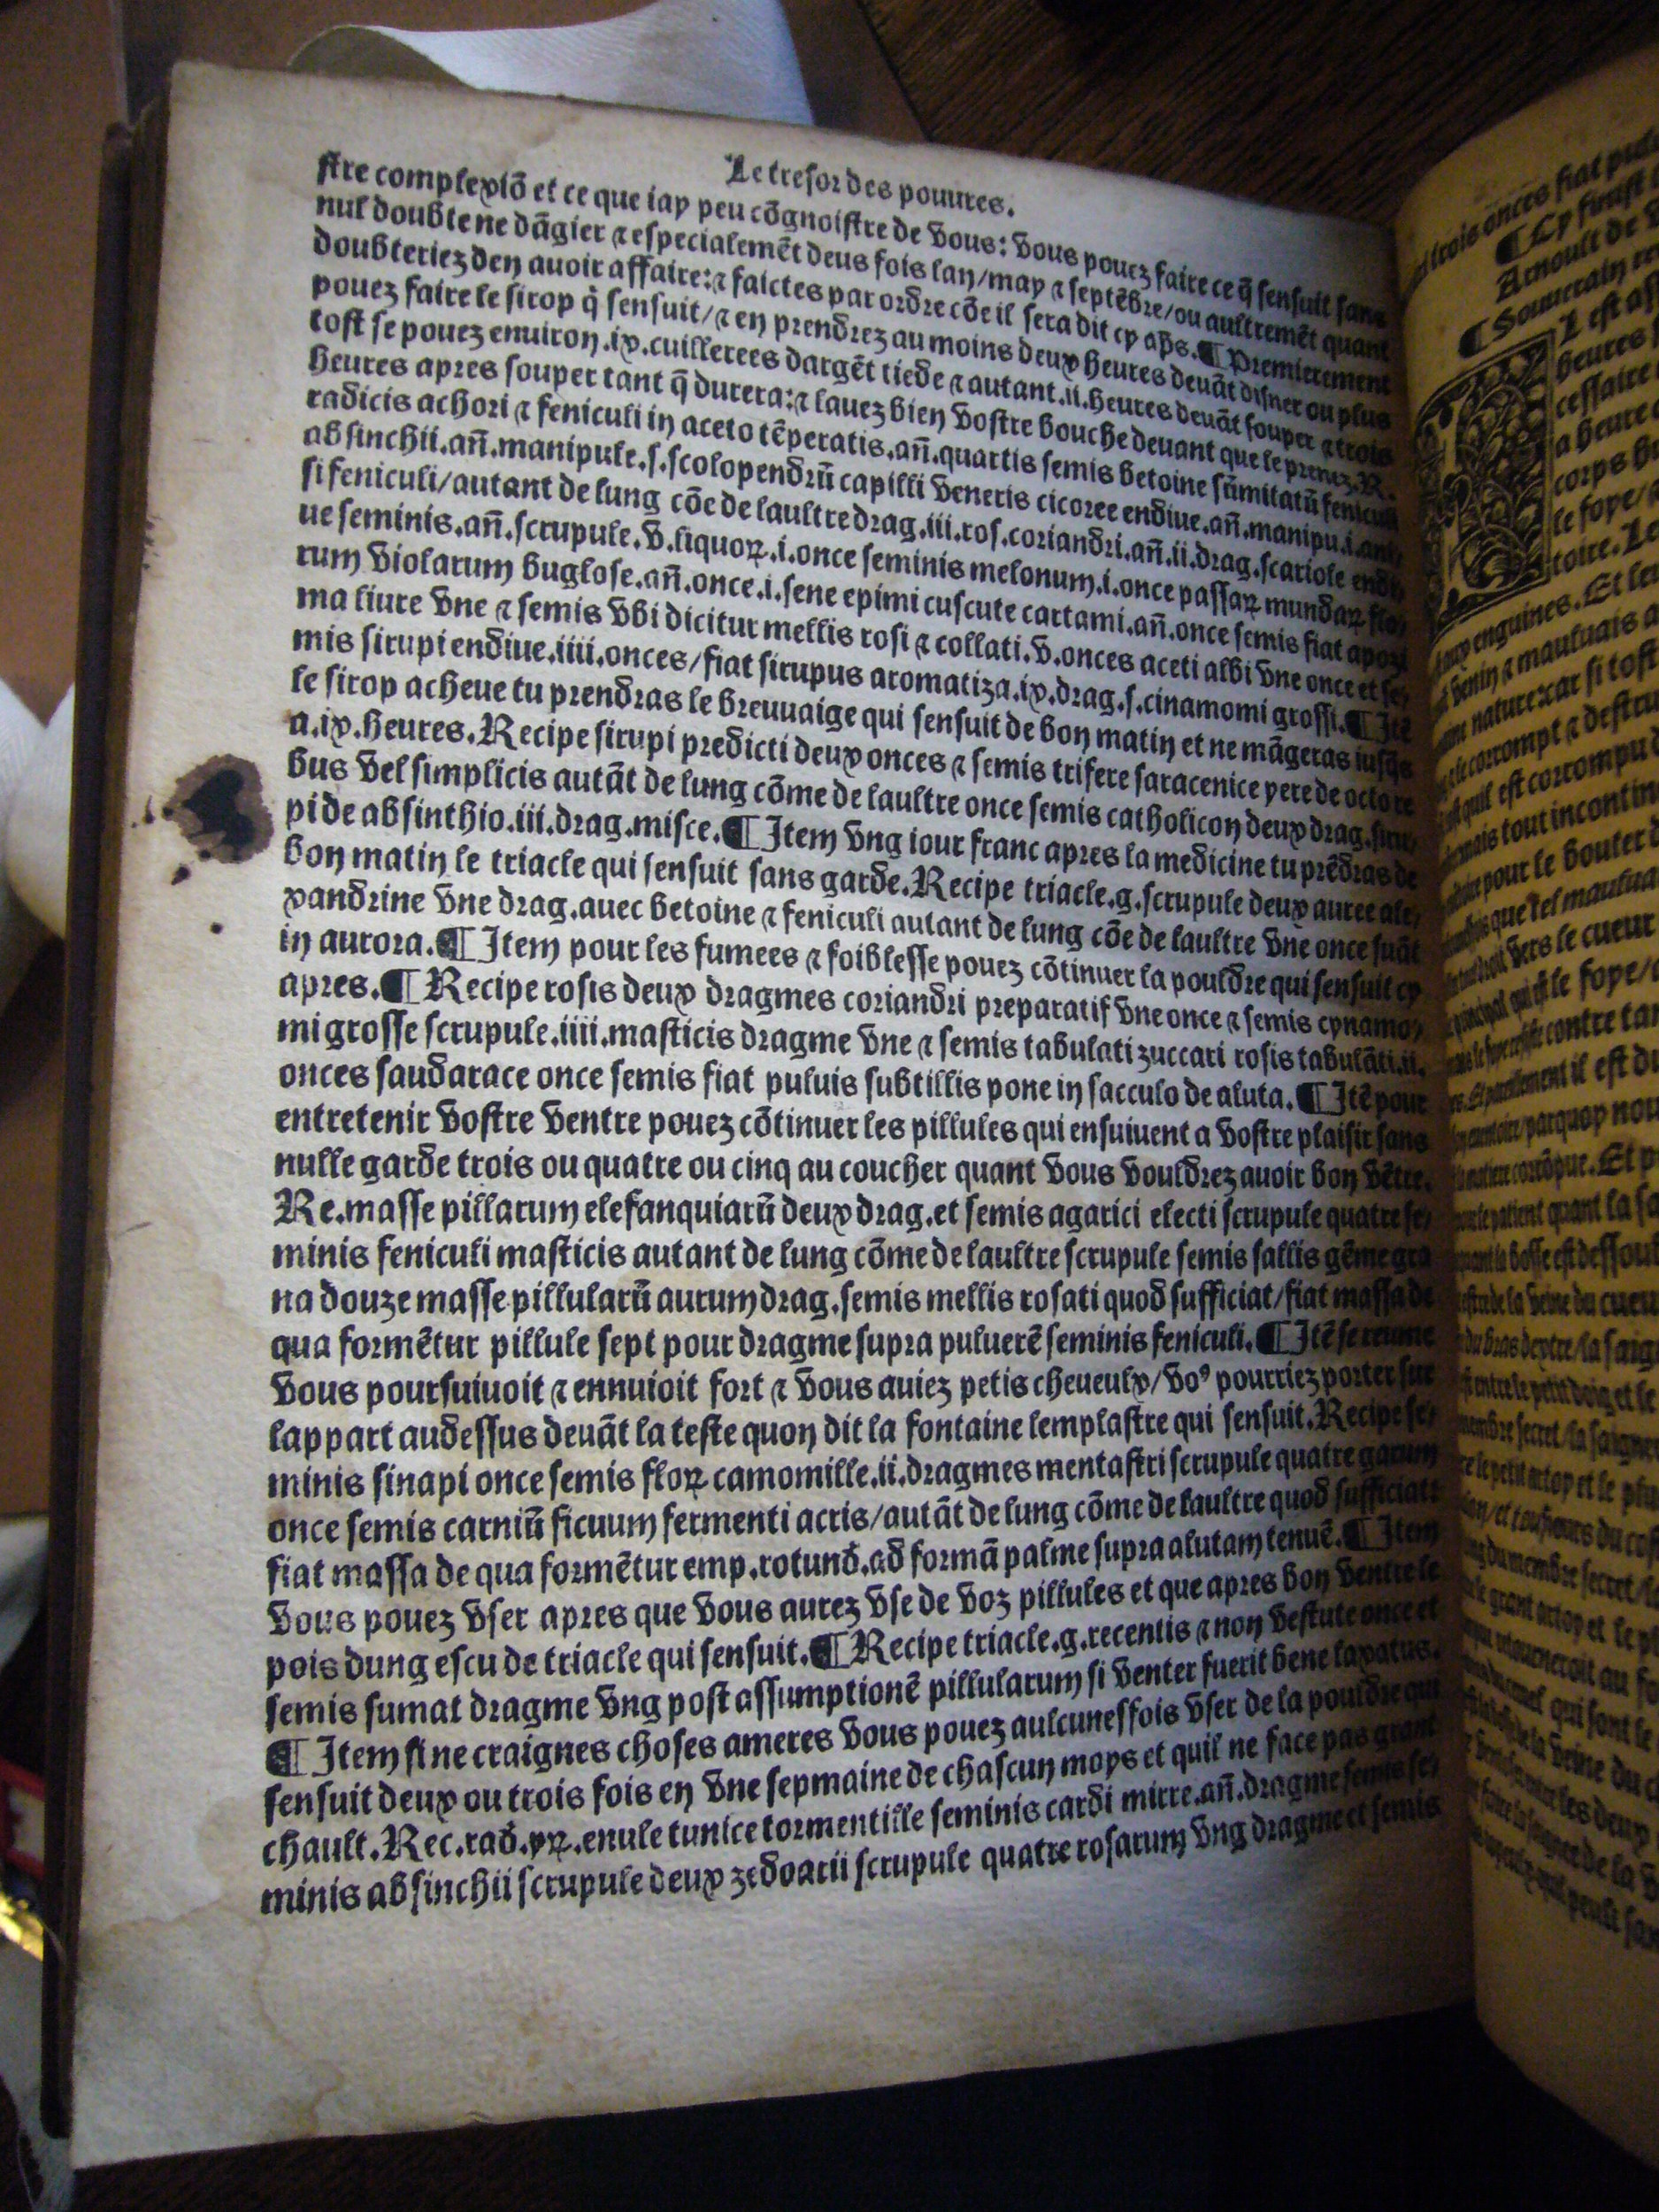 Le tresor des pouures.
stre complexiõ et ce que iay peu cõgnoistre de vous: vous pouez faire ce q̃ sensuit sans
nul doubte ne dãgier ⁊ especialemẽt deus fois lan/may ⁊ septẽbre/ou aultremẽt quant
doubteriez den auoir affaire:⁊ faictes par ordre cõe il sera dit cy aps̃.¶ Premierement
pouez faire le sirop q̃ sensuit/⁊ en prendrez au moins deux heures deuãt disner ou plus
tost se pouez enuiron.ix.cuillerees dargẽt tiede ⁊ autant.ii.heures deuãt souper ⁊ trois
heures apres souper tant q̃ durera:⁊ lauez bien vostre bouche deuant que le prenez.R.
radicis achori ⁊ feniculi in aceto tẽperatis.añ.quartis semis betoine sũmitatũ feniculi
absinchii.añ.manipule.s.scolopendriũ capilli veneris cicoree endiue.añ.manipu.i.ani
si feniculi/autant de lung cõe de laultre drag.iii.ros.coriandri.añ.ii.drag.scariole endi
ue seminis.añ.scrupule.v.liquoꝝ.i.once seminis melonum.i.once passaꝝ mundaꝝ flo
rum violarum buglose.añ.once.i.sene epimi cuscute cartami.añ.once semis fiat apozi
ma liure vne ⁊ semis vbi dicitur mellis rosi ⁊ collati.v.onces aceti albi vne once et se
mis sirupi endiue.iiii.onces/fiat sirupus aromatiza.ix.drag.s.cinamomi grossi.¶ Itẽ
le sirop acheue tu prendras le breuuaige qui sensuit de bon matin et ne mãgeras iusq̃s
a.ix.heures.Recipe sirupi predicti deux onces ⁊ semis trifere saracenice yere de octo re
bus vel simplicis autãt de lung cõme de laultre once semis catholicon deux drag.siru
pi de absinthio.iii.drag.misce.¶ Item vng iour franc apres la medicine tu prẽdras de
bon matin le triacle qui sensuit sans garde.Recipe triacle.g.scrupule deux auree ale
xandrine vne drag.auec betoine ⁊ feniculi autant de lung cõe de laultre vne once suãt
in aurora.¶ Item pour les fumees ⁊ foiblesse pouez cõtinuer la pouldre qui sensuit cy
apres.¶ Recipe rosis deux dragmes coriandri preparatif vne once ⁊ semis cynamo
mi grosse scrupule.iiii.masticis dragme vne ⁊ semis tabulati zuccari rosis tabulãti.ii.
onces saudarace once semis fiat puluis subtillis pone in sacculo de aluta.¶ Itẽ pour
entretenir vostre ventre pouez cõtinuer les pillules qui ensuiuent a vostre plaisir sans
nulle garde trois ou quatre ou cinq au coucher quant vous vouldrez auoir bon vẽtre.
Re.masse pillarum elefanquiarũ deux drag.et semis agarici electi scrupule quatre se
minis feniculi masticis autant de lung cõme de laultre scrupule semis sallis gẽme gra
na douze masse pillularũ aurum drag.semis mellis rosati quod sufficiat/fiat massa de
qua formẽtur pillule sept pour dragme supra puluerẽ seminis feniculi.¶ Itẽ se reume
vous poursuiuoit ⁊ ennuioit fort ⁊ vous auiez petis cheueulx/voꝰ pourriez porter sur
lappart audessus deuãt la teste quon dit la fontaine lemplastre qui sensuit.Recipe se
minis sinapi once semis floꝝ camomille.ii.dragmes mentastri scrupule quatre garum
once semis carniũ ficuum fermenti acris/autãt de lung cõme de laultre quod sufficiatt
fiat massa de qua formẽtur emp.rotund.ad formã palme supra alutam tenuẽ.¶ Item
vous pouez vser apres que vous aurez vse de voz pillules et que apres bon ventre le
pois dung escu de triacle qui sensuit.¶ Recipe triacle.g.recentis ⁊ non vestute once et
semis sumat dragme vng post assumptionẽ pillularum si venter fuerit bene laxatus.
¶ Item si ne craignes choses ameres vous pouez aulcuneffois vser de la pouldre qui
sensuit deux ou trois fois en vne sepmaine de chascun moys et quil ne face pas grant
chault.Rec.rad.yꝝ.enule tunice tormentille seminis cardi mirre.añ.dragme semis se
minis absinchii scrupule deux zedoarii scrupule quatre rosarum vng dragme et semis
trois onces fiat
¶ Cy finist
Arnoult de
¶ Souuerain
heures
cessaire
a heure
corps
le foye
toire.Le
enguines.Et
venin ⁊ mauluais
nature:car si tost
corrompt ⁊
quil est corrompu
mais tout incontin
pour le bouter
que tel
vers le cueur
le foye
contre
il est
parquoy
Et
le patient quant la
la bosse est dessoubz
de la veine du cueur
du bras dextre/la
entre le petit doig et le
membre secret/la
le petit artoy et le
et tousiours du
du membre secret
le grant artoy et le
retourneroit au
qui sont le
de la veine du
les deux
de la